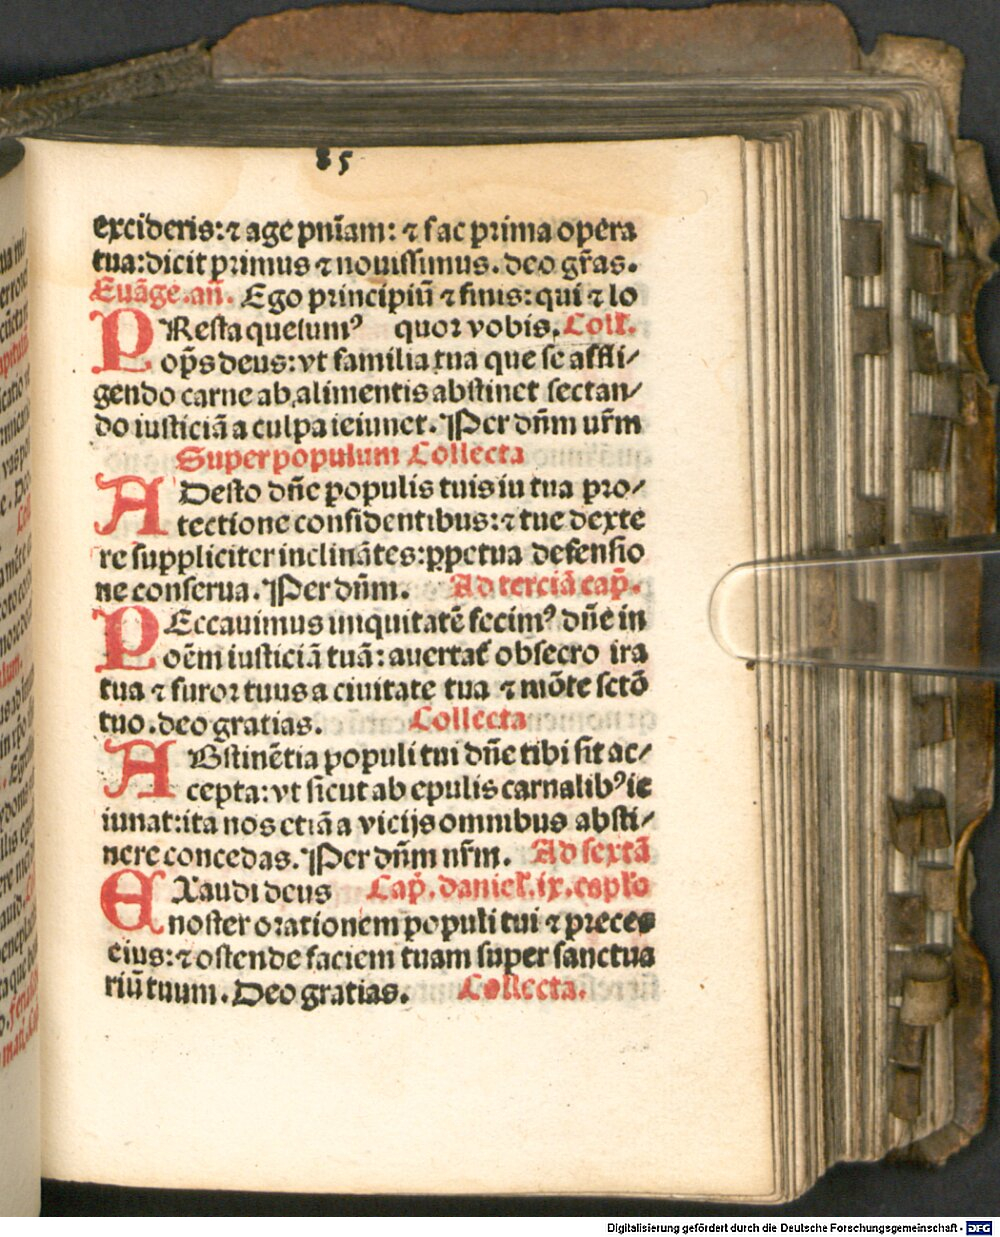 85
excideris: ⁊ age pnīam: ⁊ fac prima opera
tua: dicit primus ⁊ nouissimus. deo gr̄as.
Euāge. an̄. Ego principiū ⁊ finis: qui ⁊ lo
PResta quesumꝰ quor vobis. Coll.
op̄s deus: vt familia tua que se affli/
gendo carne ab alimentis abstinet sectan/
do iusticiā a culpa ieiunet. Per dn̄m nr̄m
Super populum Collecta
ADesto dn̄e populis tuis in tua pro/
tectione confidentibus: ⁊ tue dexte
re suppliciter inclinātes: ꝑpetua defensio
ne conserua. Per dn̄m. Ad terciā cap̄.
PEccauimus iniquitatē fecimꝰ dn̄e in
oēm iusticiā tuā: auertat̄ obsecro ira
tua ⁊ furor tuus a ciuitate tua ⁊ mōte sctō
tuo. deo gratias. Collecta
ABstinētia populi tui dn̄e tibi sit ac/
cepta: vt sicut ab epulis carnalibꝰ ie
iunat: ita nos etiā a vicijs omnibus absti/
nere concedas. Per dn̄m nr̄m. Ad sextā
EXaudi deus Cap̄. daniel. ix. caplo
noster orationem populi tui ⁊ preces
eius: ⁊ ostende faciem tuam super sanctua
riū tuum. Deo gratias. Collecta.
Digitalisierung gefördert durch die Deutsche Forschungsgemeinschaft - DFG